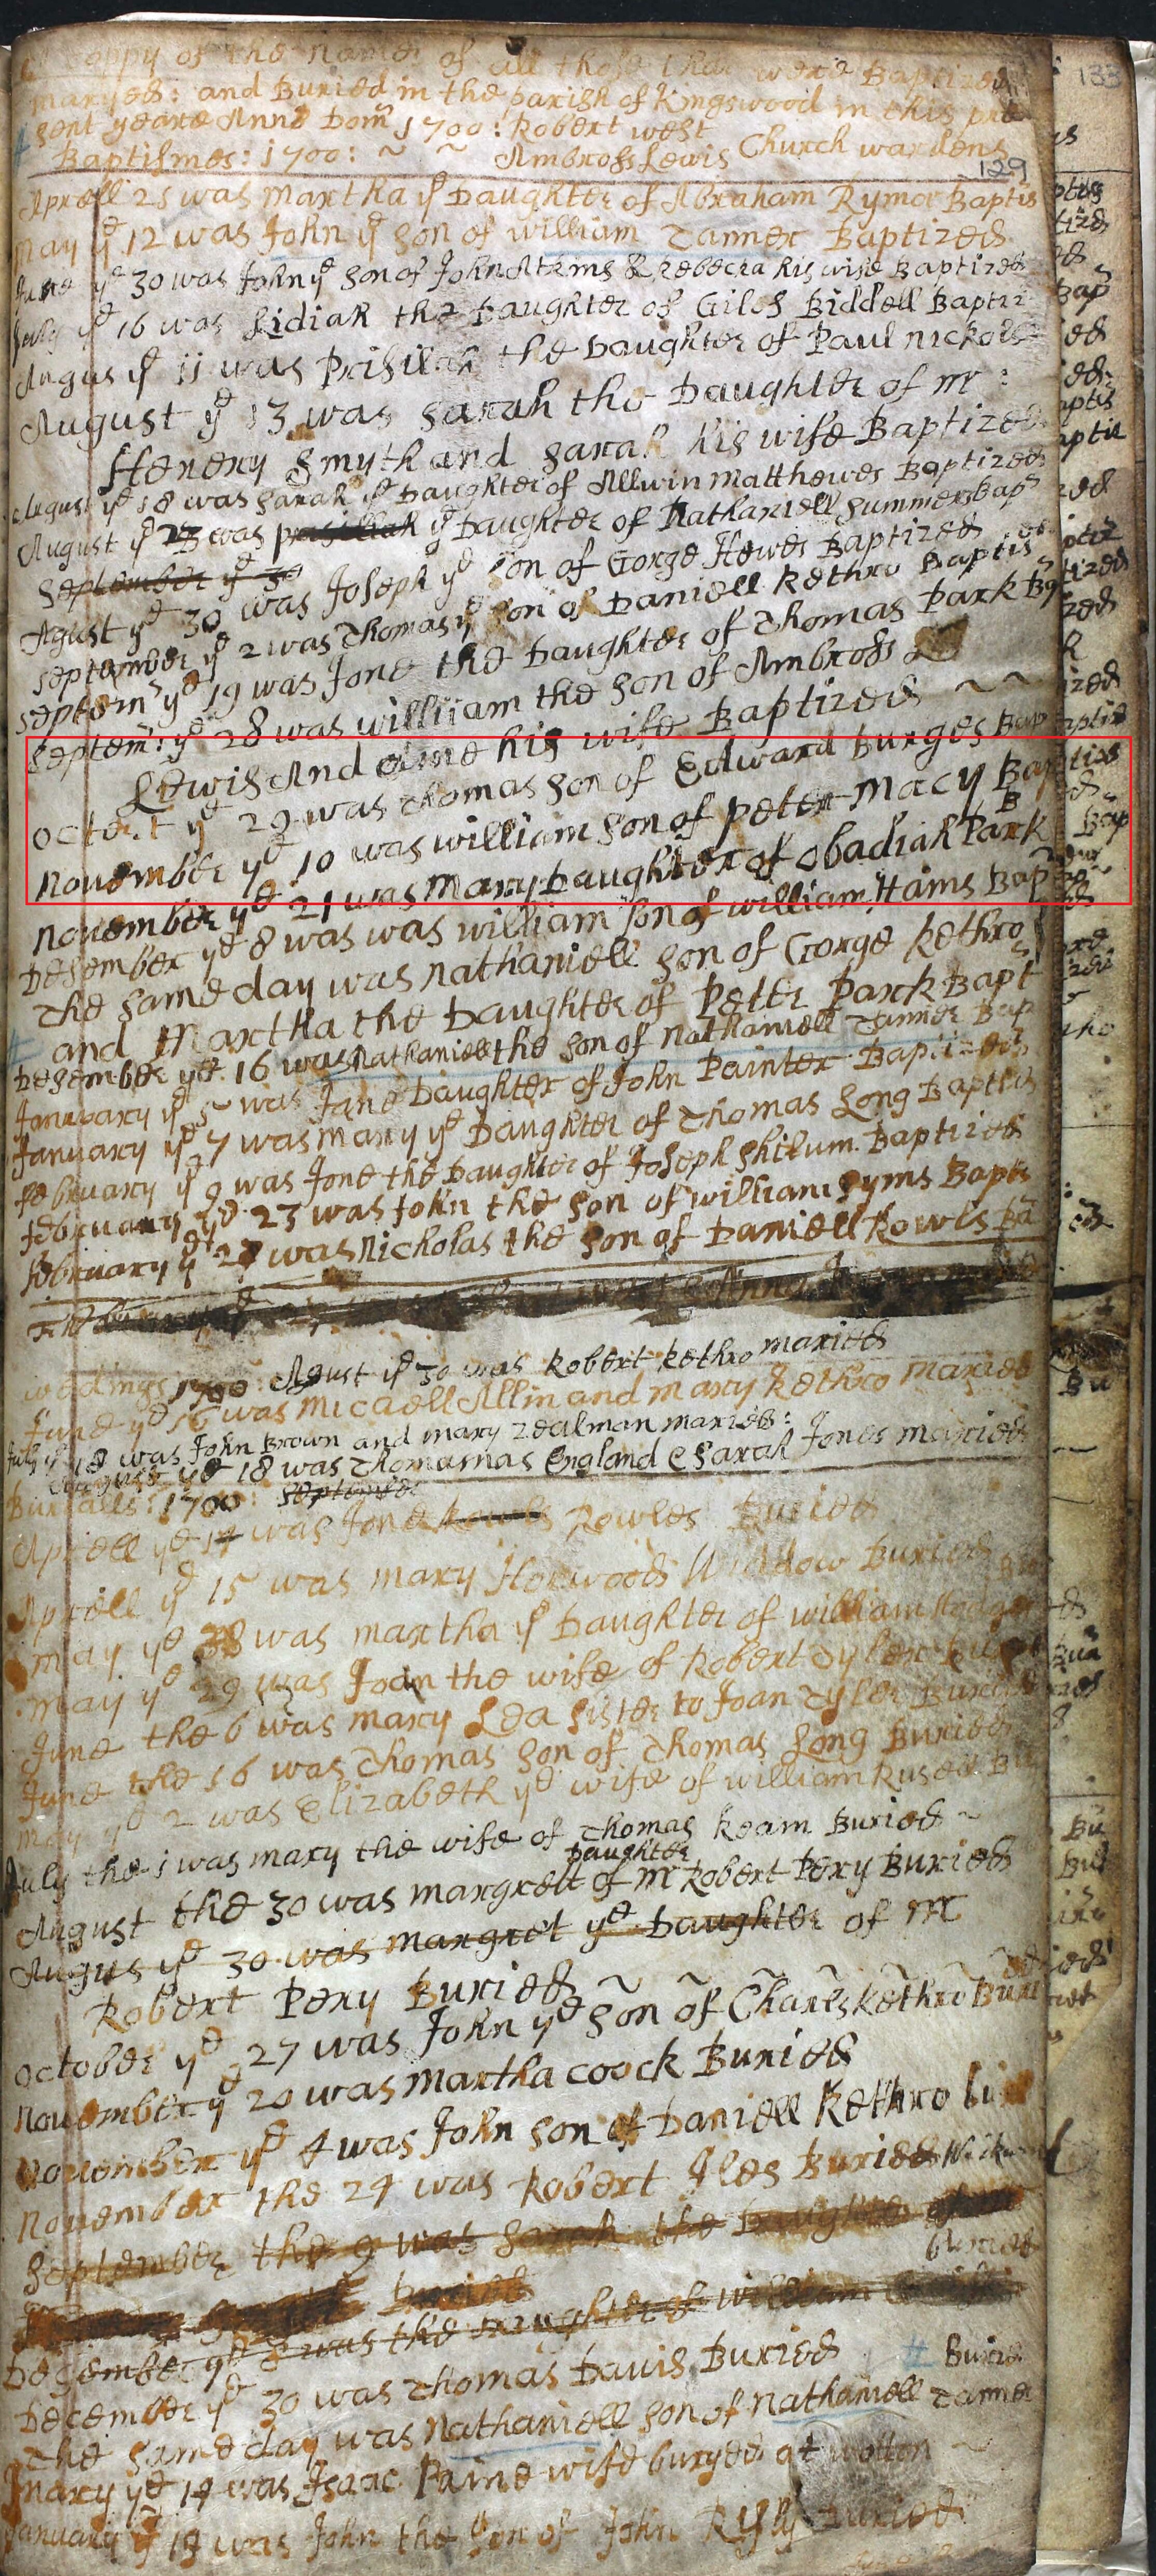 Coppy of the Names of all those that were Baptized
maryed: and Buried in the parish of Kingswood in this pre
sent yeare Anno Dom 1700: Robert west
Baptismes: 1700: ~ ~ Ambross Lewis Church wardens
129
133
Aprell 25 was Martha yͤ Daughter of Abraham Rymor Baptis
May yͤ 12 was John yͤ son of william Tanner Baptized
June yͤ 30 was John yͤ son of John Atkins & Rebecca his wife Baptized
July yͤ 16 was Lidiah the Daughter of Giles Biddell Baptiz
Augus yͤ 11 was Prisilah the Daughter of Paul nickols
August yͤ 13 was Sarah the Daughter of Mr:
Henery Smyth and Sarah his wife Baptized
August yͤ 18 was Sarah yͤ Daughter of Allwin Matthewes Baptized
August yͤ 25 was prisillah yͤ Daughter of Nathaniell Summers bap
September yͤ 30
Agust yͤ 30 was Joseph yͤ son of Gorge Hewes Baptized
September yͤ 2 was Thomas yͤ son of Daniell Kethro Baptis
Septem yͤ 19 was Jone the Daughter of Thomas Park Bap
Septem: yͤ 28 was william the son of Ambross
Lewis And Anne his wife Baptized ~ ~
Octer.t yͤ 29 was Thomas son of Edward Burges Bap
November yͤ 10 was william son of peter Macy Bap
November yͤ 21 was Mary Daughter of obadiah Park B
Desember yͤ 8 was was william son of william Hams Bap
The same day was Nathaniell son of Gorge Kethro
and Martha the Daughter of Peter Park Bapt
Desember yͤ 16 was Nathaniell the son of Nathaniell Tanner Bap
January yͤ 5 was Jane Daughter of John Painter Baptized
January yͤ 7 was Mary yͤ Daughter of Thomas Long Baptis
February yͤ 9 was Jone the Daughter of Joseph Shilum Baptized
February yͤ 23 was John the son of william Syms Bapt
February yͤ 27 was Nicholas the son of Daniell Rowls Ba
wedings 1700: Agust yͤ 30 was Robert Kethro maried
June yͤ 16 was Micaell Allin and mary Kethro Maried
July yͤ 18 was John Brown and mary Zealman maried:
August yͤ 18 was Thomamas England & Sarah Jones maried
Burialls: 1700: September
Aprell yͤ 14 was Jone Rowles Rowles Buried
Aprell yͤ 15 was mary Horwood Widdow Buried
may yͤ 28 was martha yͤ Daughter of william Hodges
May yͤ 29 was Joan the wife of Robert Tyler Buried
June the 6 was mary Lea Sister to Joan Tyler Buried
June the 16 was Thomas son of Thomas Long Buried
may yͤ 2 was Elizabeth yͤ wife of william Rusell Bu
July the 1 was mary the wife of Thomas Keam Buried ~
Daughter
August the 30 was margrett of Mr Robert Pery Buried
Augus yͤ 30 was margret yͤ Daughter of Mr
Robert Pery Buried
October yͤ 27 was John yͤ son of Charls Kethro Buri
November yͤ 20 was Martha Coock Buried
November yͤ 4 was John son of Daniell Kethro
November the 24 was Robert Iles Buried
September the 9 was Sarah the Daughter
Buried
Desember yͤ 8 was the Daughter of william
December yͤ 30 was Thomas Davis Buried
Buried
The same day was Nathaniell son of Nathaniell Tanner
yͤ 14 was Isaac Paine wife buryed at wotton ~
January yͤ 19 was John the son of John Buried